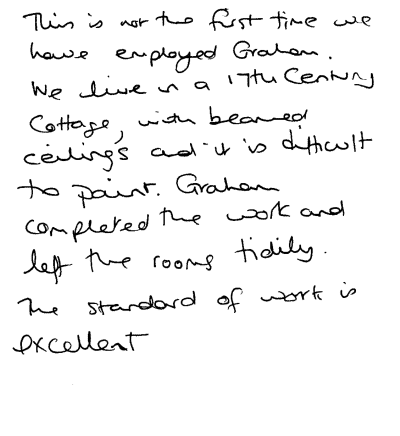 This is not the first time we
have employed Graham.
We live in a 17th Century
Cottage, with beamed
ceilings and it is difficult
to paint. Graham
completed the work and
left the rooms tidily.
The standard of work is
excellent